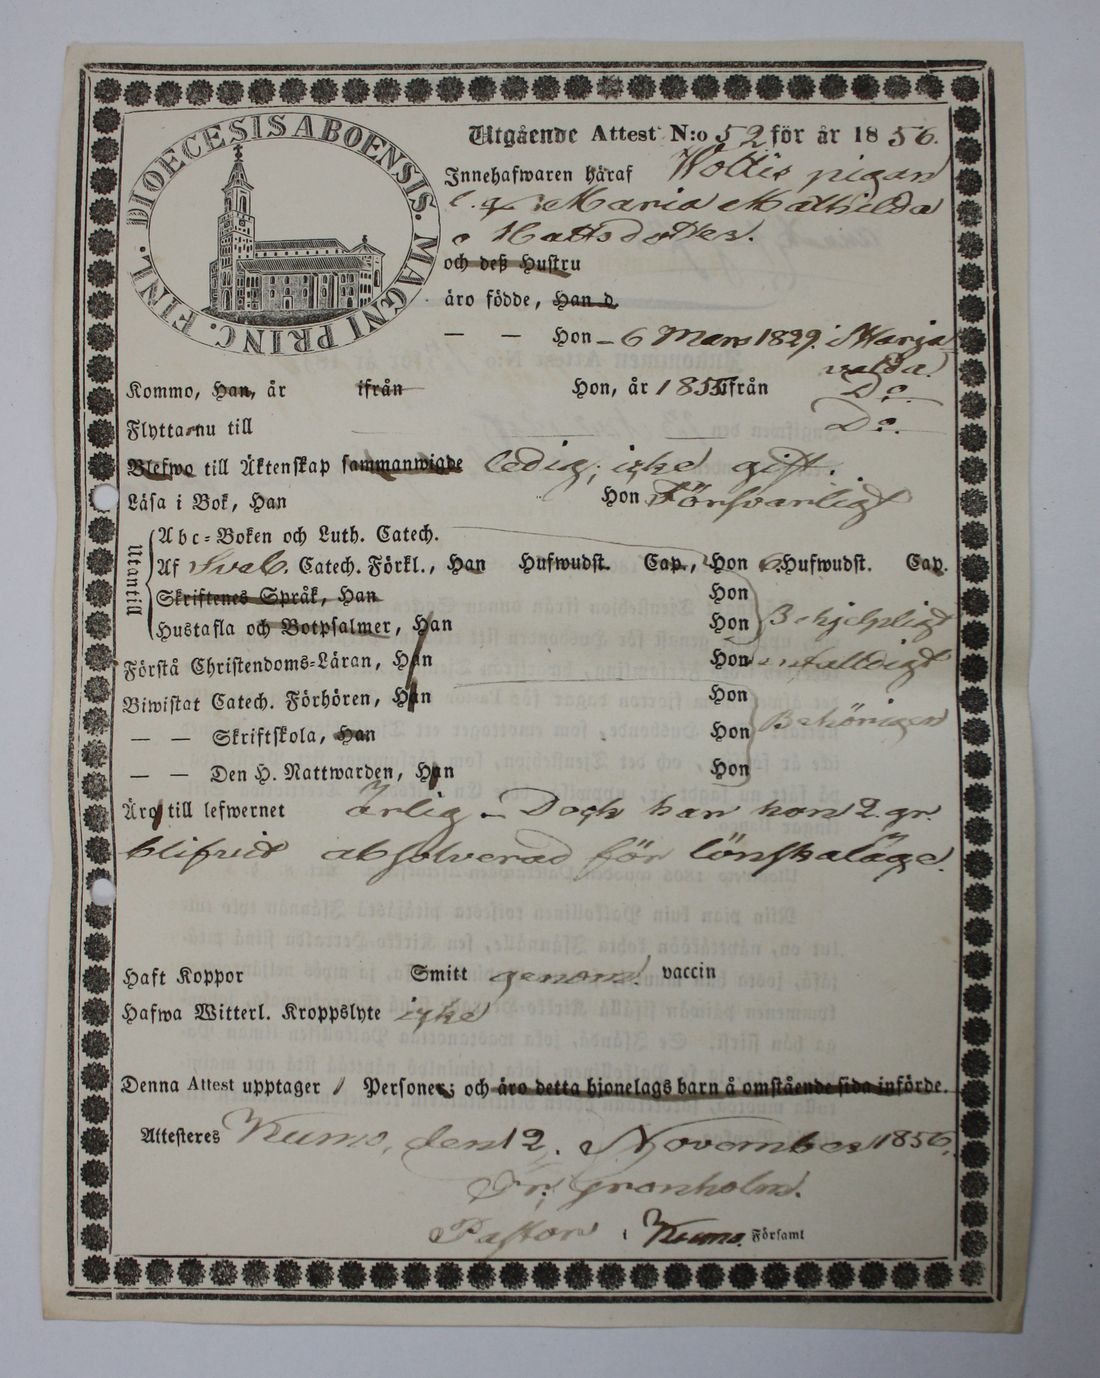 DIOECESIS ABOENSIS. MAGNI PRINC. FINL.
Utgående Attest N:o 52 för år 1856.
Innehafwaren häraf Woltis pigan
Maria Mathilda
Mattsdotter.
och deß Hustru
äro födde, Han d.
— — Hon 6 Mars 1829. i Maria
Kommo, Han, år ifrån Hon, år 1855 ifrån Do.
Flytta nu till Do.
Blefwo till Äktenskap sammanwigde ledig, icke gift.
Läsa i Bok, Han Hon Försvarligt
Utantill
Abc-Boken och Luth. Catech.
Af Sveb. Catech. Förkl., Han Hufwudst. Cap., Hon 6 Hufwudst. Cap.
Skriftenes Språk, Han Hon
Hustafla och Botpsalmer, Han Hon Behjelpligt
Förstå Christendoms-Läran, Han Hon enfaldigt
Biwistat Catech. Förhören, Han Hon
— — Skriftskola, Han Hon Behörigen
— — Den H. Nattwarden, Han Hon
Äro till lefwernet ärlig – Dock har hon 2 gr.
blifvit absolverad för lönskaläge.
Haft Koppor Smitt genom vaccin
Hafwa Witterl. Kroppslyte icke
Denna Attest upptager 1 Personer; och äro detta hjonelags barn å omstående sida införde.
Attesteres Kumo, den 12 November 1856.
Fr. Grönholm.
Pastor i Kumo Församl